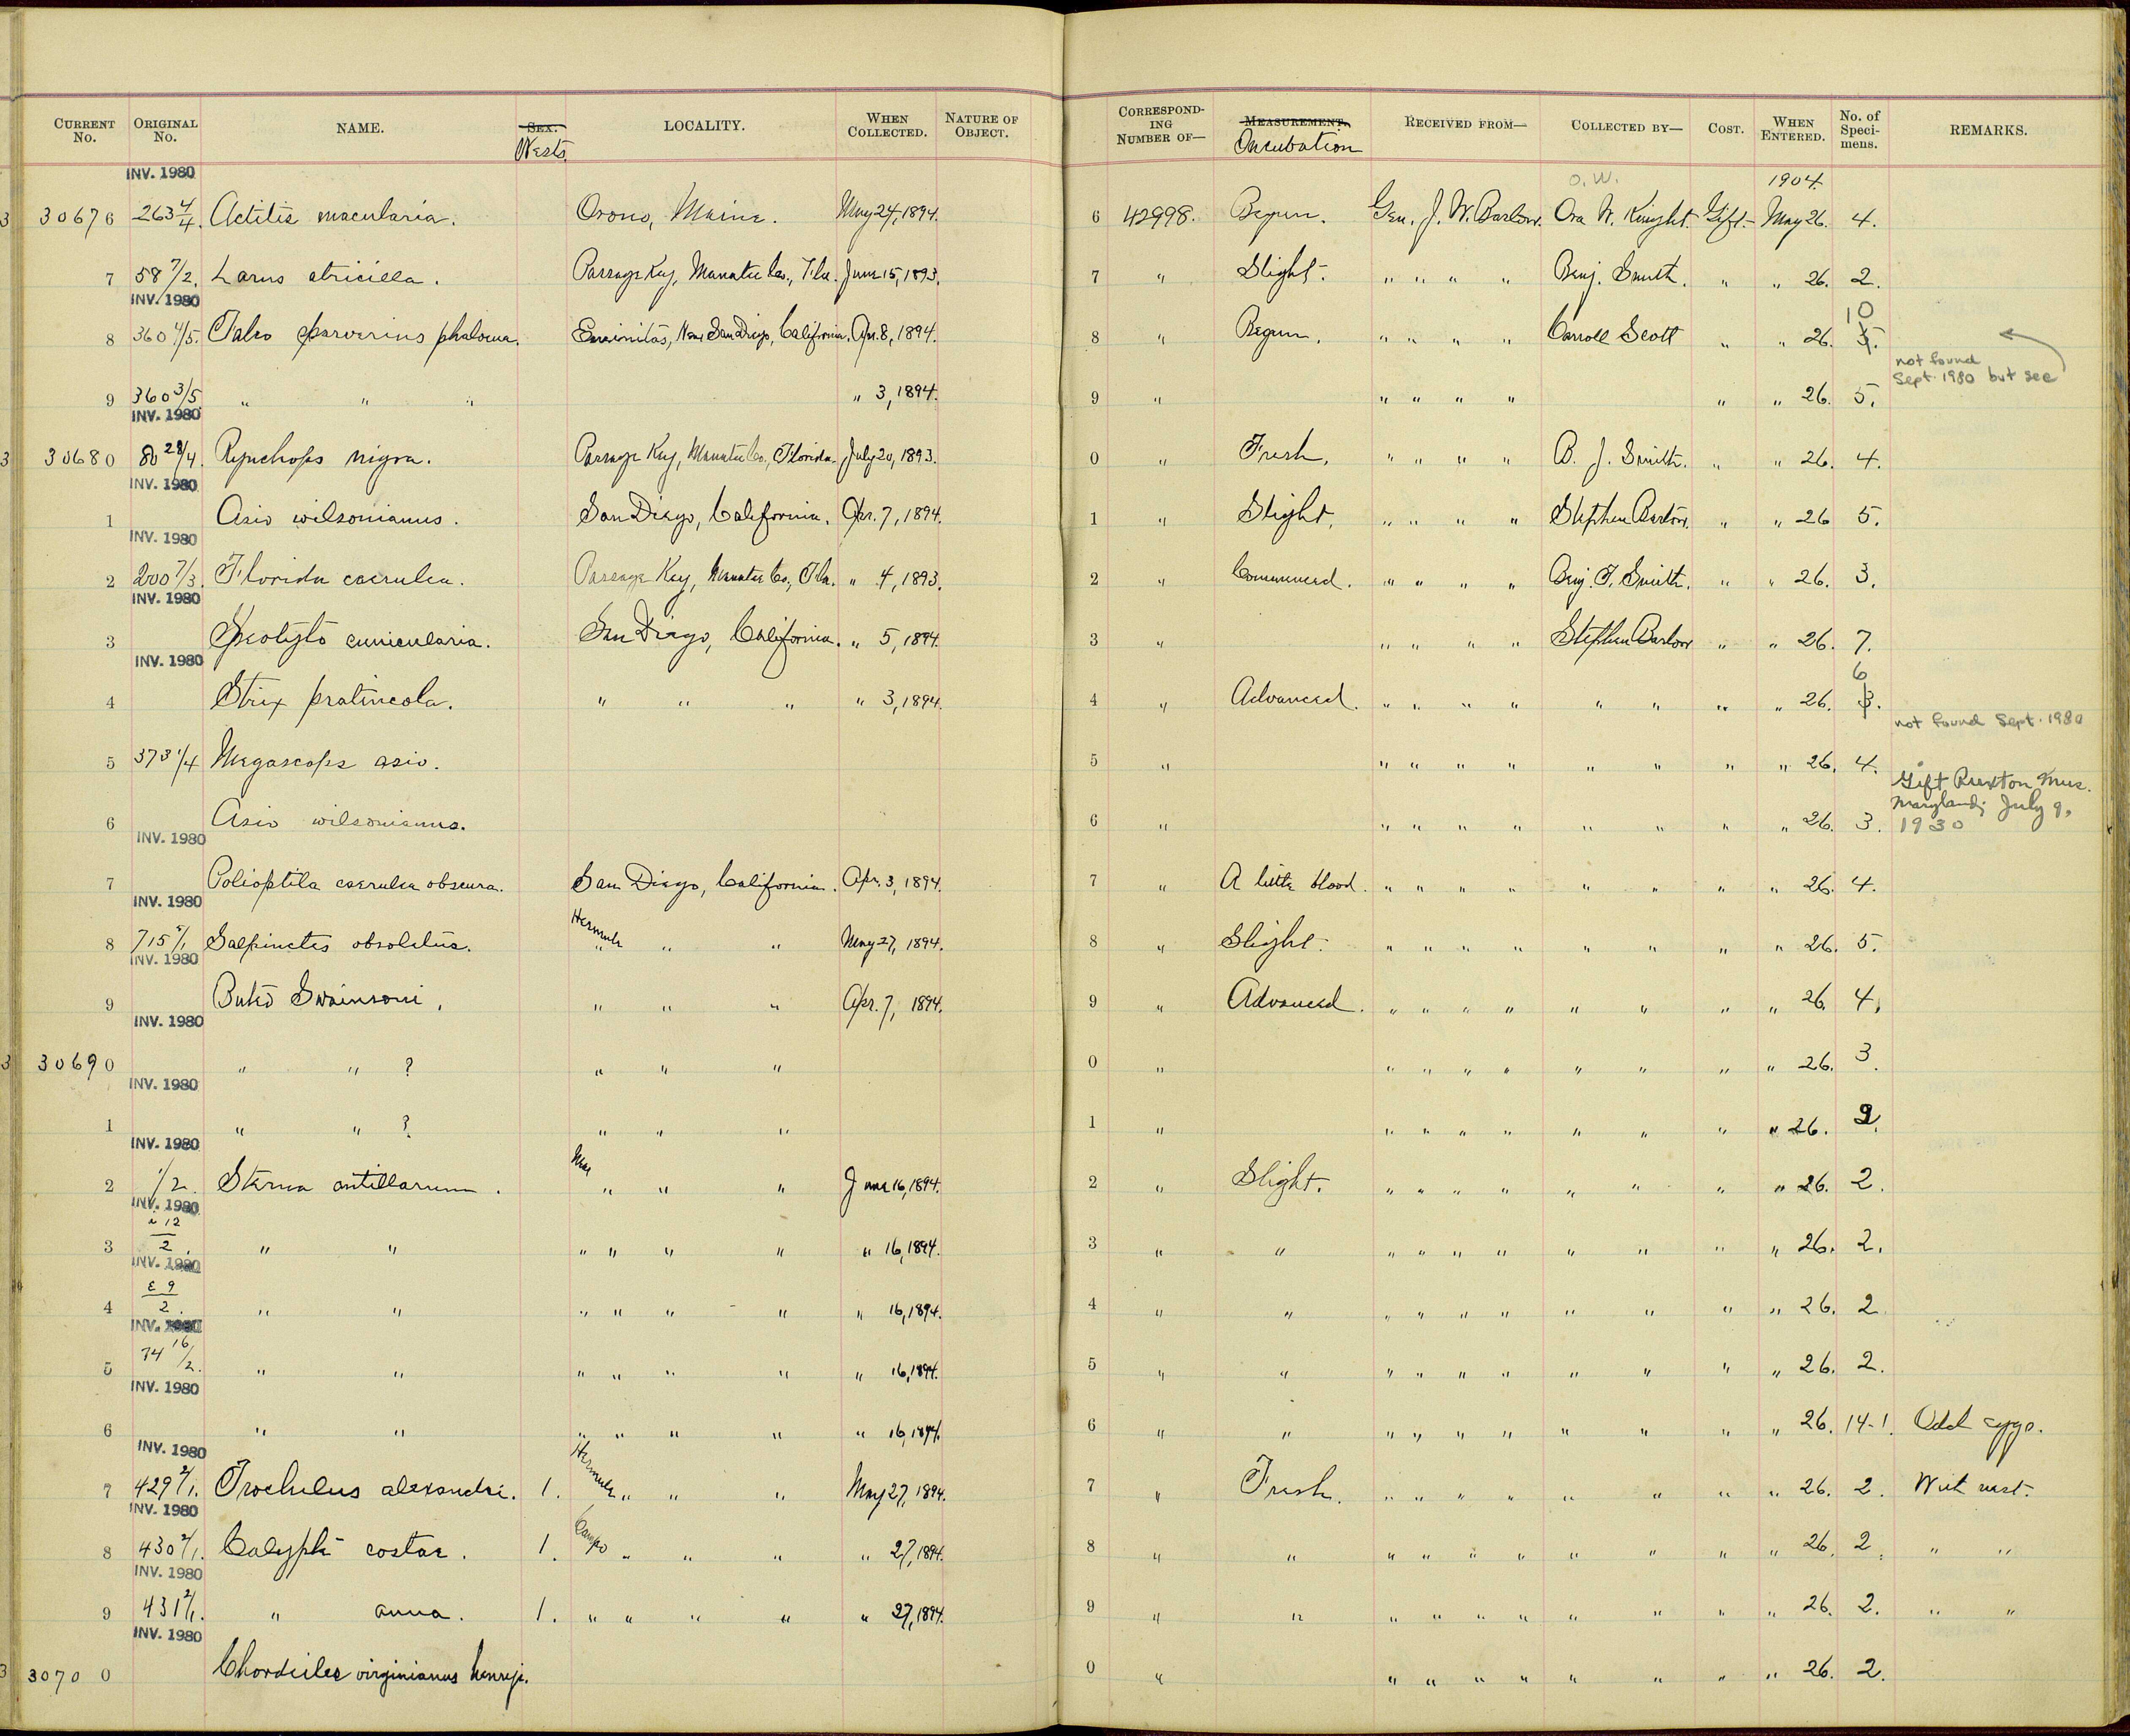 CURRENT No. ORIGINAL No. NAME. SEX. Nests. LOCALITY. WHEN COLLECTED. NATURE OF OBJECT. CORRESPOND-ING NUMBER OF— MEASUREMENT. Incubation RECEIVED FROM— COLLECTED BY— COST. WHEN ENTERED. No. of Speci-mens. REMARKS.
INV. 1980 O.W. 1904.
3 30676 263 4/4. Actitis macularia. Orono, Maine. May 24, 1894. 6 42998. Begun. Gen. J. W. Barlow. Ora W. Knight. Gift. May 26. 4.
7 58 7/2. Larus atricilla. Passage Key, Manatee Co., Fla. June 15, 1893. 7 " Slight. " " " " Benj. Smith. " " 26. 2.
INV. 1980 10
8 360 4/5. Falco sparverius phaloena. Encinitas, Near San Diego, California. Apr. 8, 1894. 8 " Begun. " " " " Carroll Scott " " 26. 5.
not found Sept. 1980 but see
9 360 3/5 " " " " 3, 1894. 9 " " " " " " " 26. 5.
INV. 1980
3 30680 80 28/4. Rynchops nigra. Passage Key, Manatee Co., Florida. July 20, 1893. 0 " Fresh. " " " " B. J. Smith. " " 26. 4.
INV. 1980
1 Asio wilsonianus. San Diego, California. Apr. 7, 1894. 1 " Slight. " " " " Stephen Barlow. " " 26 5.
INV. 1980
2 200 7/3. Florida caerulea. Passage Key, Manatee Co., Fla. " 4, 1893. 2 " Commenced. " " " " Benj. F. Smith. " " 26. 3.
INV. 1980
3 Speotyto cunicularia. San Diego, California. " 5, 1894. 3 " " " " " Stephen Barlow " " 26. 7.
INV. 1980 6
4 Strix pratincola. " " " " 3, 1894. 4 " Advanced. " " " " " " " " 26. 3.
not found Sept. 1980
5 373 1/4 Megascops asio. 5 " " " " " " " " " 26. 4.
Gift Ruxton Mus. Maryland; July 9, 1930
6 Asio wilsonianus. 6 " " " " " " " " " 26. 3.
INV. 1980
7 Polioptila caerulea obscura. San Diego, California. Apr. 3, 1894. 7 " A little blood. " " " " " " " " 26. 4.
INV. 1980
8 715 5/1 Salpinctes obsoletus. " " " May 27, 1894. 8 " Slight. " " " " " " " " 26. 5.
INV. 1980
9 Buteo Swainsoni. " " " Apr. 7, 1894. 9 " Advanced. " " " " " " " " 26. 4.
INV. 1980
3 30690 " " ? " " " 0 " " " " " " " " " 26. 3.
INV. 1980
1 " " ? " " " 1 " " " " " " " " " 26. 2.
INV. 1980
2 1/2. Sterna antillarum. Near " " " June 16, 1894. 2 " Slight. " " " " " " " " 26. 2.
INV. 1980
3 12/2. " " " " " " " 16, 1894. 3 " " " " " " " " " " 26. 2.
INV. 1980
4 E 9/2. " " " " " " " 16, 1894. 4 " " " " " " " " " " 26. 2
INV. 1980
5 74 16/2. " " " " " " " 16, 1894. 5 " " " " " " " " " " 26. 2.
INV. 1980
6 " " " " " " " 16, 1894. 6 " " " " " " " " " " 26. 14-1. Odd eggs.
INV. 1980
7 429 2/1. Trochulus alexandri. 1. " " " May 27, 1894. 7 " Fresh. " " " " " " " " 26. 2. With nest.
INV. 1980
8 430 2/1. Calypte costae. 1. Campo " " " " 27, 1894. 8 " " " " " " " " " " 26. 2. " "
INV. 1980
9 431 2/1. " anna. 1. " " " " " 27, 1894. 9 " " " " " " " " " " 26. 2. " "
INV. 1980
3 30700 Chordeiles virginianus henryi. 0 " " " " " " " " " 26. 2.